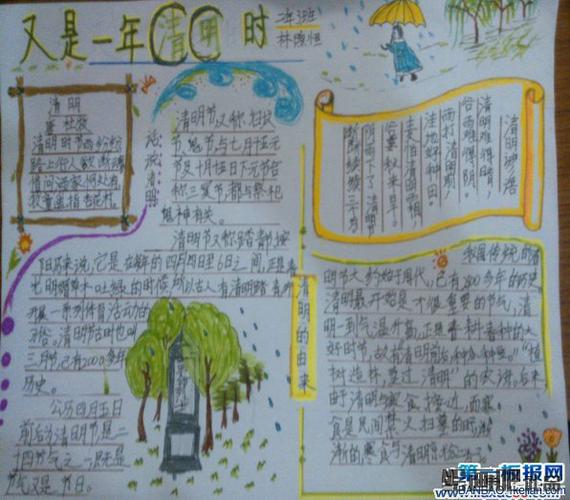 又是一年清明时
二年3班
清明
杜牧
清明时节雨纷纷
路上行人欲断魂
借问酒家何处有
牧童遥指杏花村。
话说清明
清明节又称扫坟
节、鬼节与七月十五元
节及十月十五日下元节合
称三冥节,都与祭祀
鬼神有关。
清明节又称踏青节,按
阳历来说,它是在每年的四月四日至6日之间,正是春
光明媚草木吐绿的时候,所以古人有清明踏青,
开展一系列体育活动的
习俗。清明节古时也叫
三月节,已有2000多年
历史。
公历四月五日
前后为清明节是二
十四节气之一既是
节气又是节日。
清明谚语
清明难得晴,
谷雨难得阴。
雨打清明前
洼地好种田。
麦怕清明霜
谷要秋来旱。
阴雨下了清明节
断断续续三个月
清明的由来
我国传统的清
明节大约始于周代,已有2500多年的历史
清明最开始是一个很重要的节气,清
明一到气温升高,正是春耕春种的大
好时节,故有“清明前后,种瓜种豆。”“植
树造林,莫过清明”的农谚。后来
由于清明与寒食接近,而寒
食是民间禁火扫墓的日子,渐
渐的寒食与清明合
第一板报网